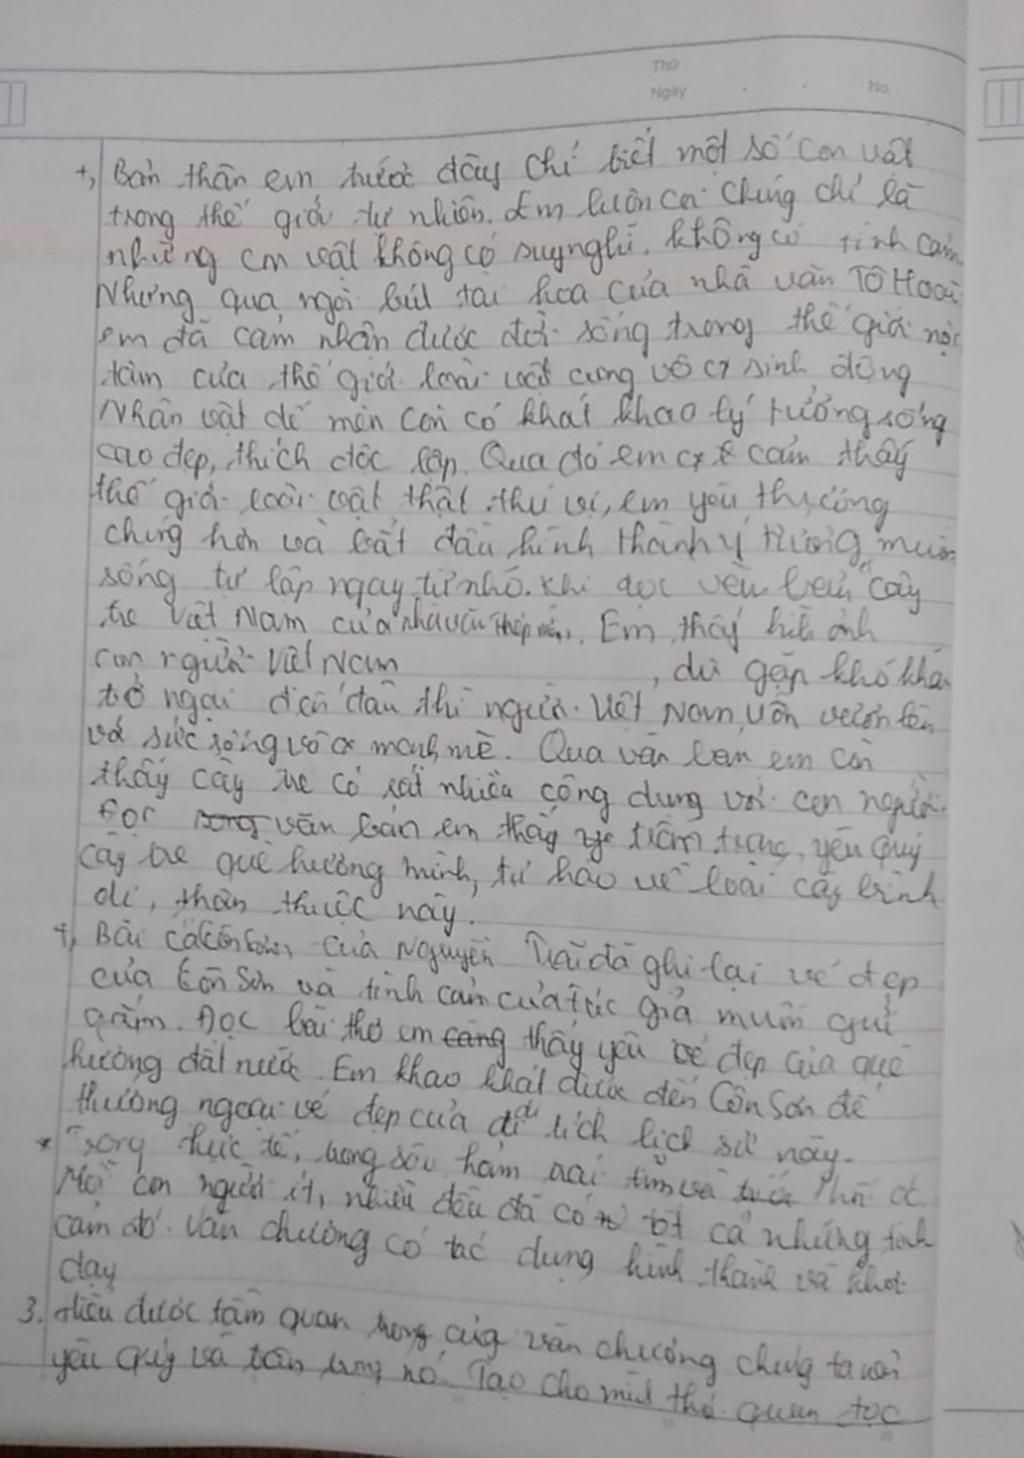 Thứ
Ngày No.
+, Bản thân em trước đây chỉ biết một số con vật
trong thế giới tự nhiên. Em luôn coi chúng chỉ là
những con vật không có suy nghĩ, không có tình cảm
Nhưng qua ngòi bút tài hoa của nhà văn Tô Hoài
em đã cảm nhận được đời sống trong thế giới nội
tâm của thế giới loài vật cũng vô cx sinh động
Nhân vật dế mèn còn có khát khao lý tưởng sống
cao đẹp, thích độc lập. Qua đó em cảm thấy
thế giới loài vật thật thú vị, em yêu thương
chúng hơn và bắt đầu hình thành ý tưởng muốn
sống tự lập ngay từ nhỏ. Khi đọc văn bản "cây
tre Việt Nam của nhà văn Thép mới, Em thấy hình ảnh
con người Việt Nam , dù gặp khó khăn
trở ngại đến đâu thì người Việt Nam vẫn vươn lên
với sức sống vô cx mạnh mẽ. Qua văn bản em còn
thấy cây tre có rất nhiều công dụng với con người.
Đọc văn bản em thấy trân trọng, yêu quý
cây tre quê hương mình, tự hào về loài cây bình
dị, thân thuộc này.
+, Bài ca Côn Sơn, của Nguyễn Trãi đã ghi lại vẻ đẹp
của Côn Sơn và tình cảm của tác giả muốn gửi
gắm. Đọc bài thơ em càng thấy yêu vẻ đẹp của quê
hương đất nước. Em khao khát được đến Côn Sơn để
thưởng ngoạn vẻ đẹp của di tích lịch sử này.
* Trong thực tế, trong sâu thẳm trái tim và
Mỗi con người ít, nhiều đều đã có tất cả những tình
cảm đó. Văn chương có tác dụng hình thành và khơi
dạy
3. Hiểu được tầm quan trọng của văn chương chúng ta nên
yêu quý và trân trọng nó. Tạo cho mình thói quen đọc